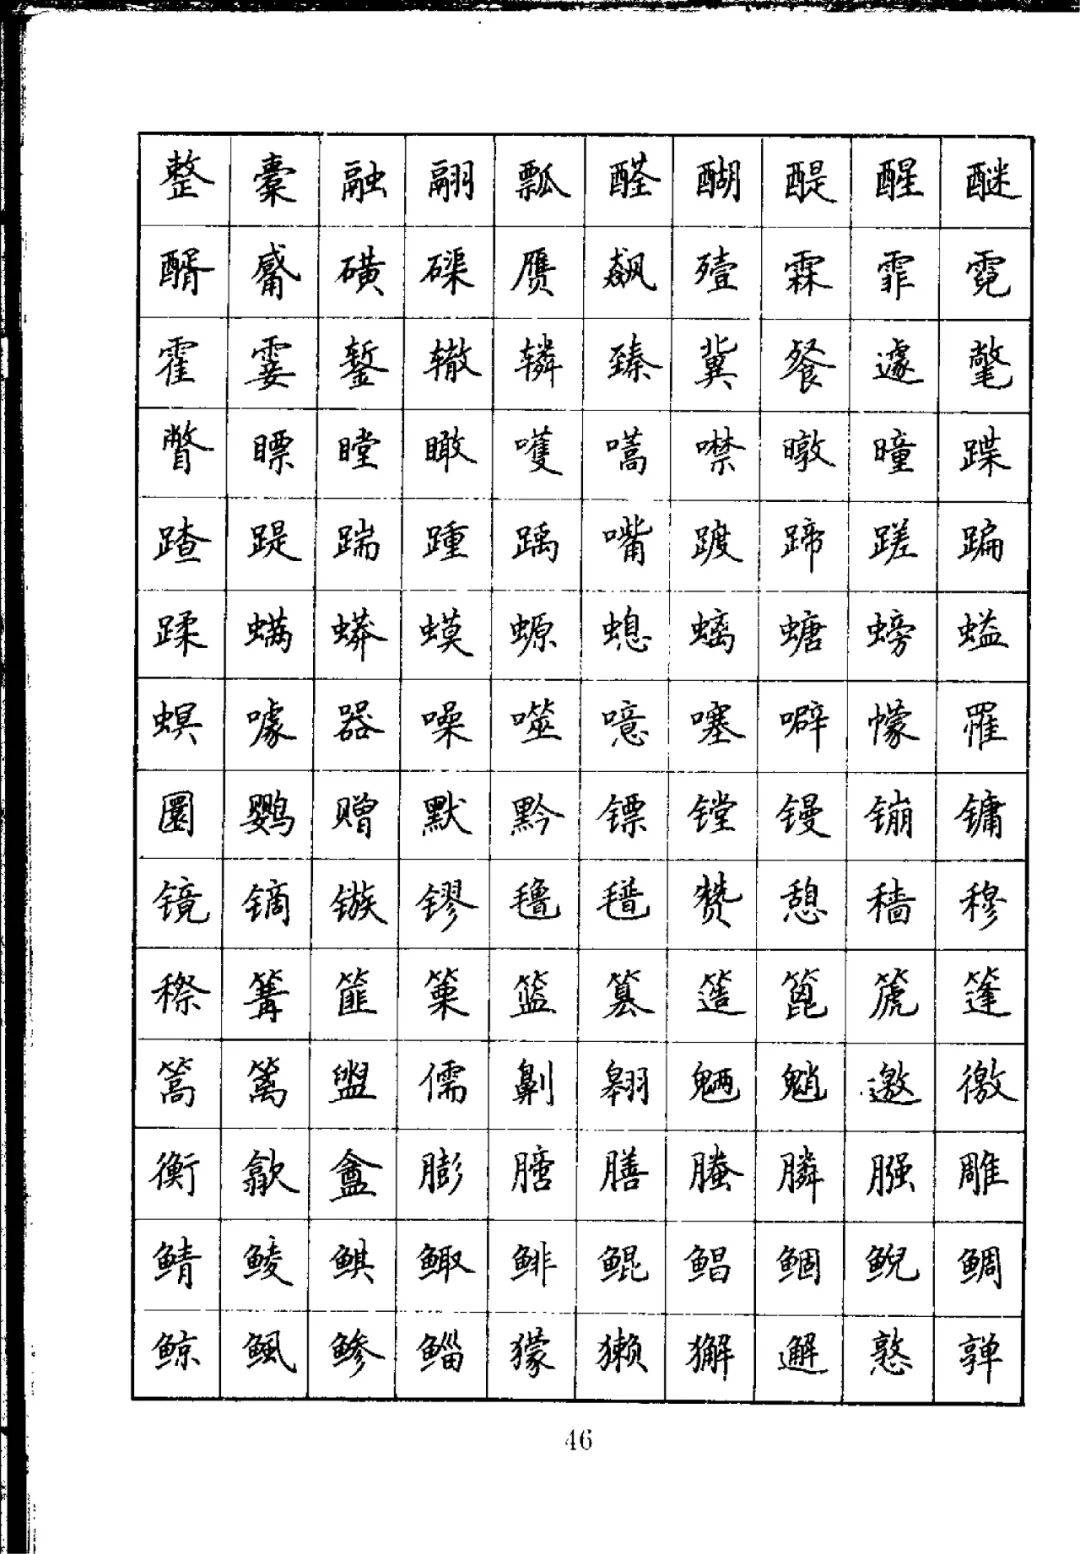 整橐融翮瓢醛醐醍醒醚
醑觱磺磲赝飙殪霖霏霓
霍霎錾辙辚臻冀餐遽氅
瞥瞟瞠瞰嚄嚆噤暾曈蹀
蹅踶踹踵踽嘴踱蹄蹉蹁
蹂螨蟒蟆螈螅螭螗螃螠
螟噱器噪噬噫噻噼幪罹
圜鹦赠默黔镖镗镘镚镛
镜镝镞镠氇氆赞憩穑穆
穄篝篚篥篮篡簉篦篪篷
篙篱盥儒劓翱魉魈邀徼
衡歙盦膨膪膳螣膦膙雕
鲭鲮鲯鲰鲱鲲鲳鲴鲵鲷
鲸鲺鲹鲻獴獭獬邂憝亸
46